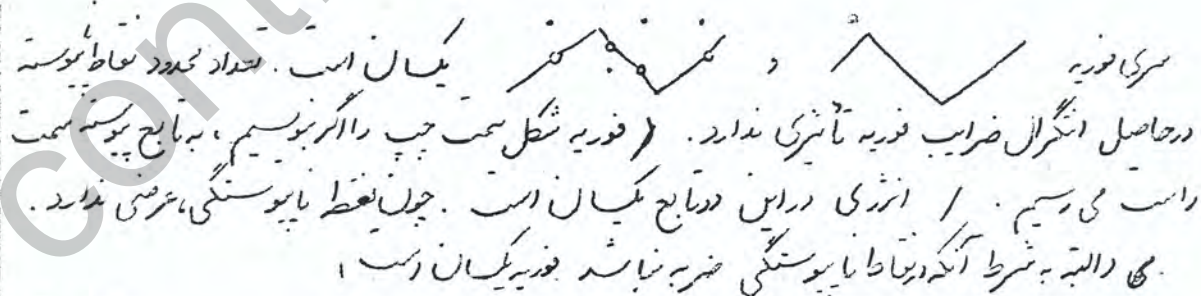 سری فوریه و یکسان است. تعداد محدود نقاط ناپیوسته
درحاصل انتگرال ضرایب فوریه تأثیری ندارد. ( فوریه شکل سمت چپ را اگر بنویسیم ، به تابع پیوسته سمت
راست می رسیم . / انرژی در این دو تابع یکسان است . چون نقطه ناپیوستگی، عرضی ندارد .
والبته به شرط آنکه در نقاط ناپیوستگی ضربه نباشد فوریه یکسان است
cont